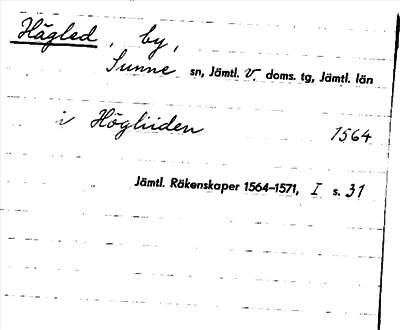 Hägled, by,
Sunne sn, Jämtl. V. doms. tg, Jämtl. län
i Högliiden 1564
Jämtl. Räkenskaper 1564–1571, I s. 31